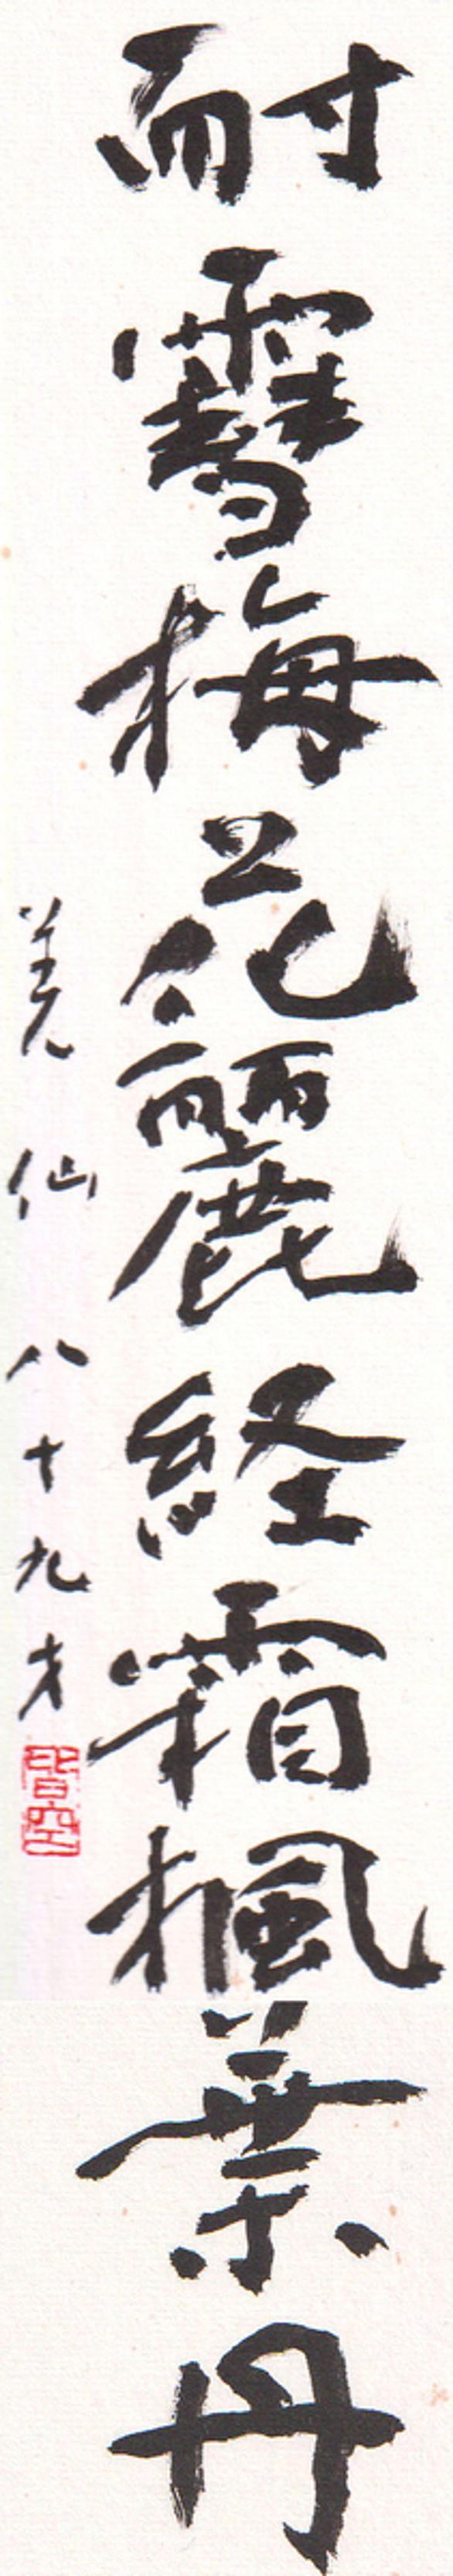 耐雪梅花麗経霜楓葉丹
仙 八十九才
皆空